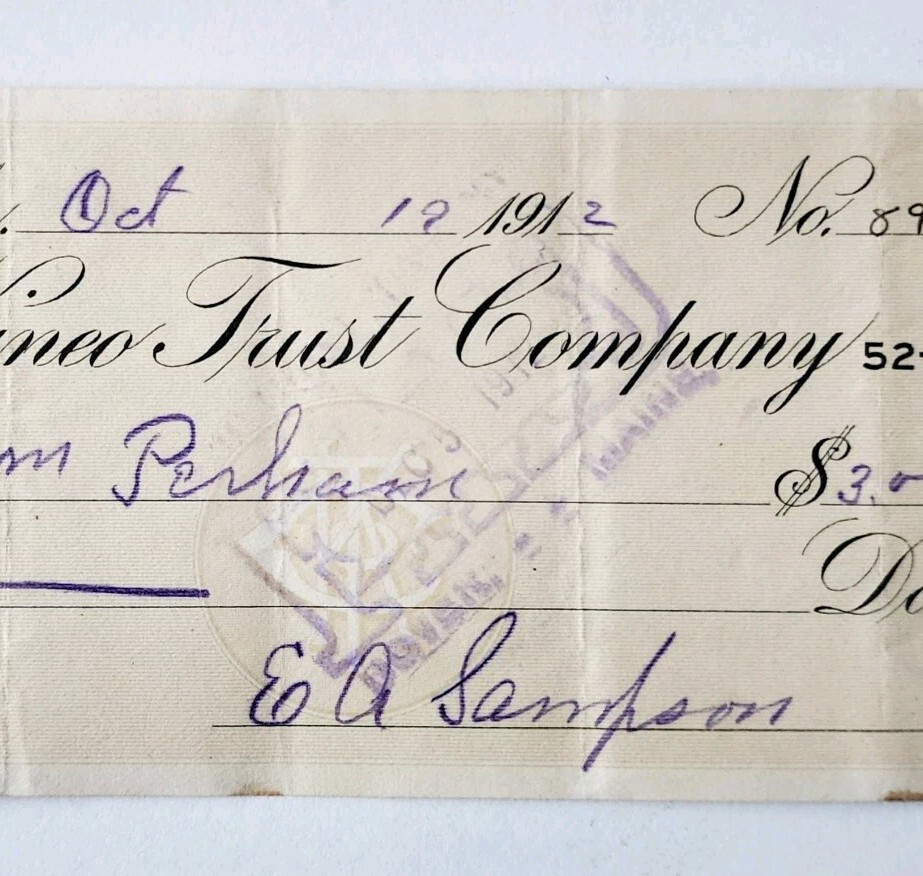 Oct 18 1912 No. 89
ineo Trust Company 52-
m Perham $3.0
Do
E A Sampson
DOVER
MAINE